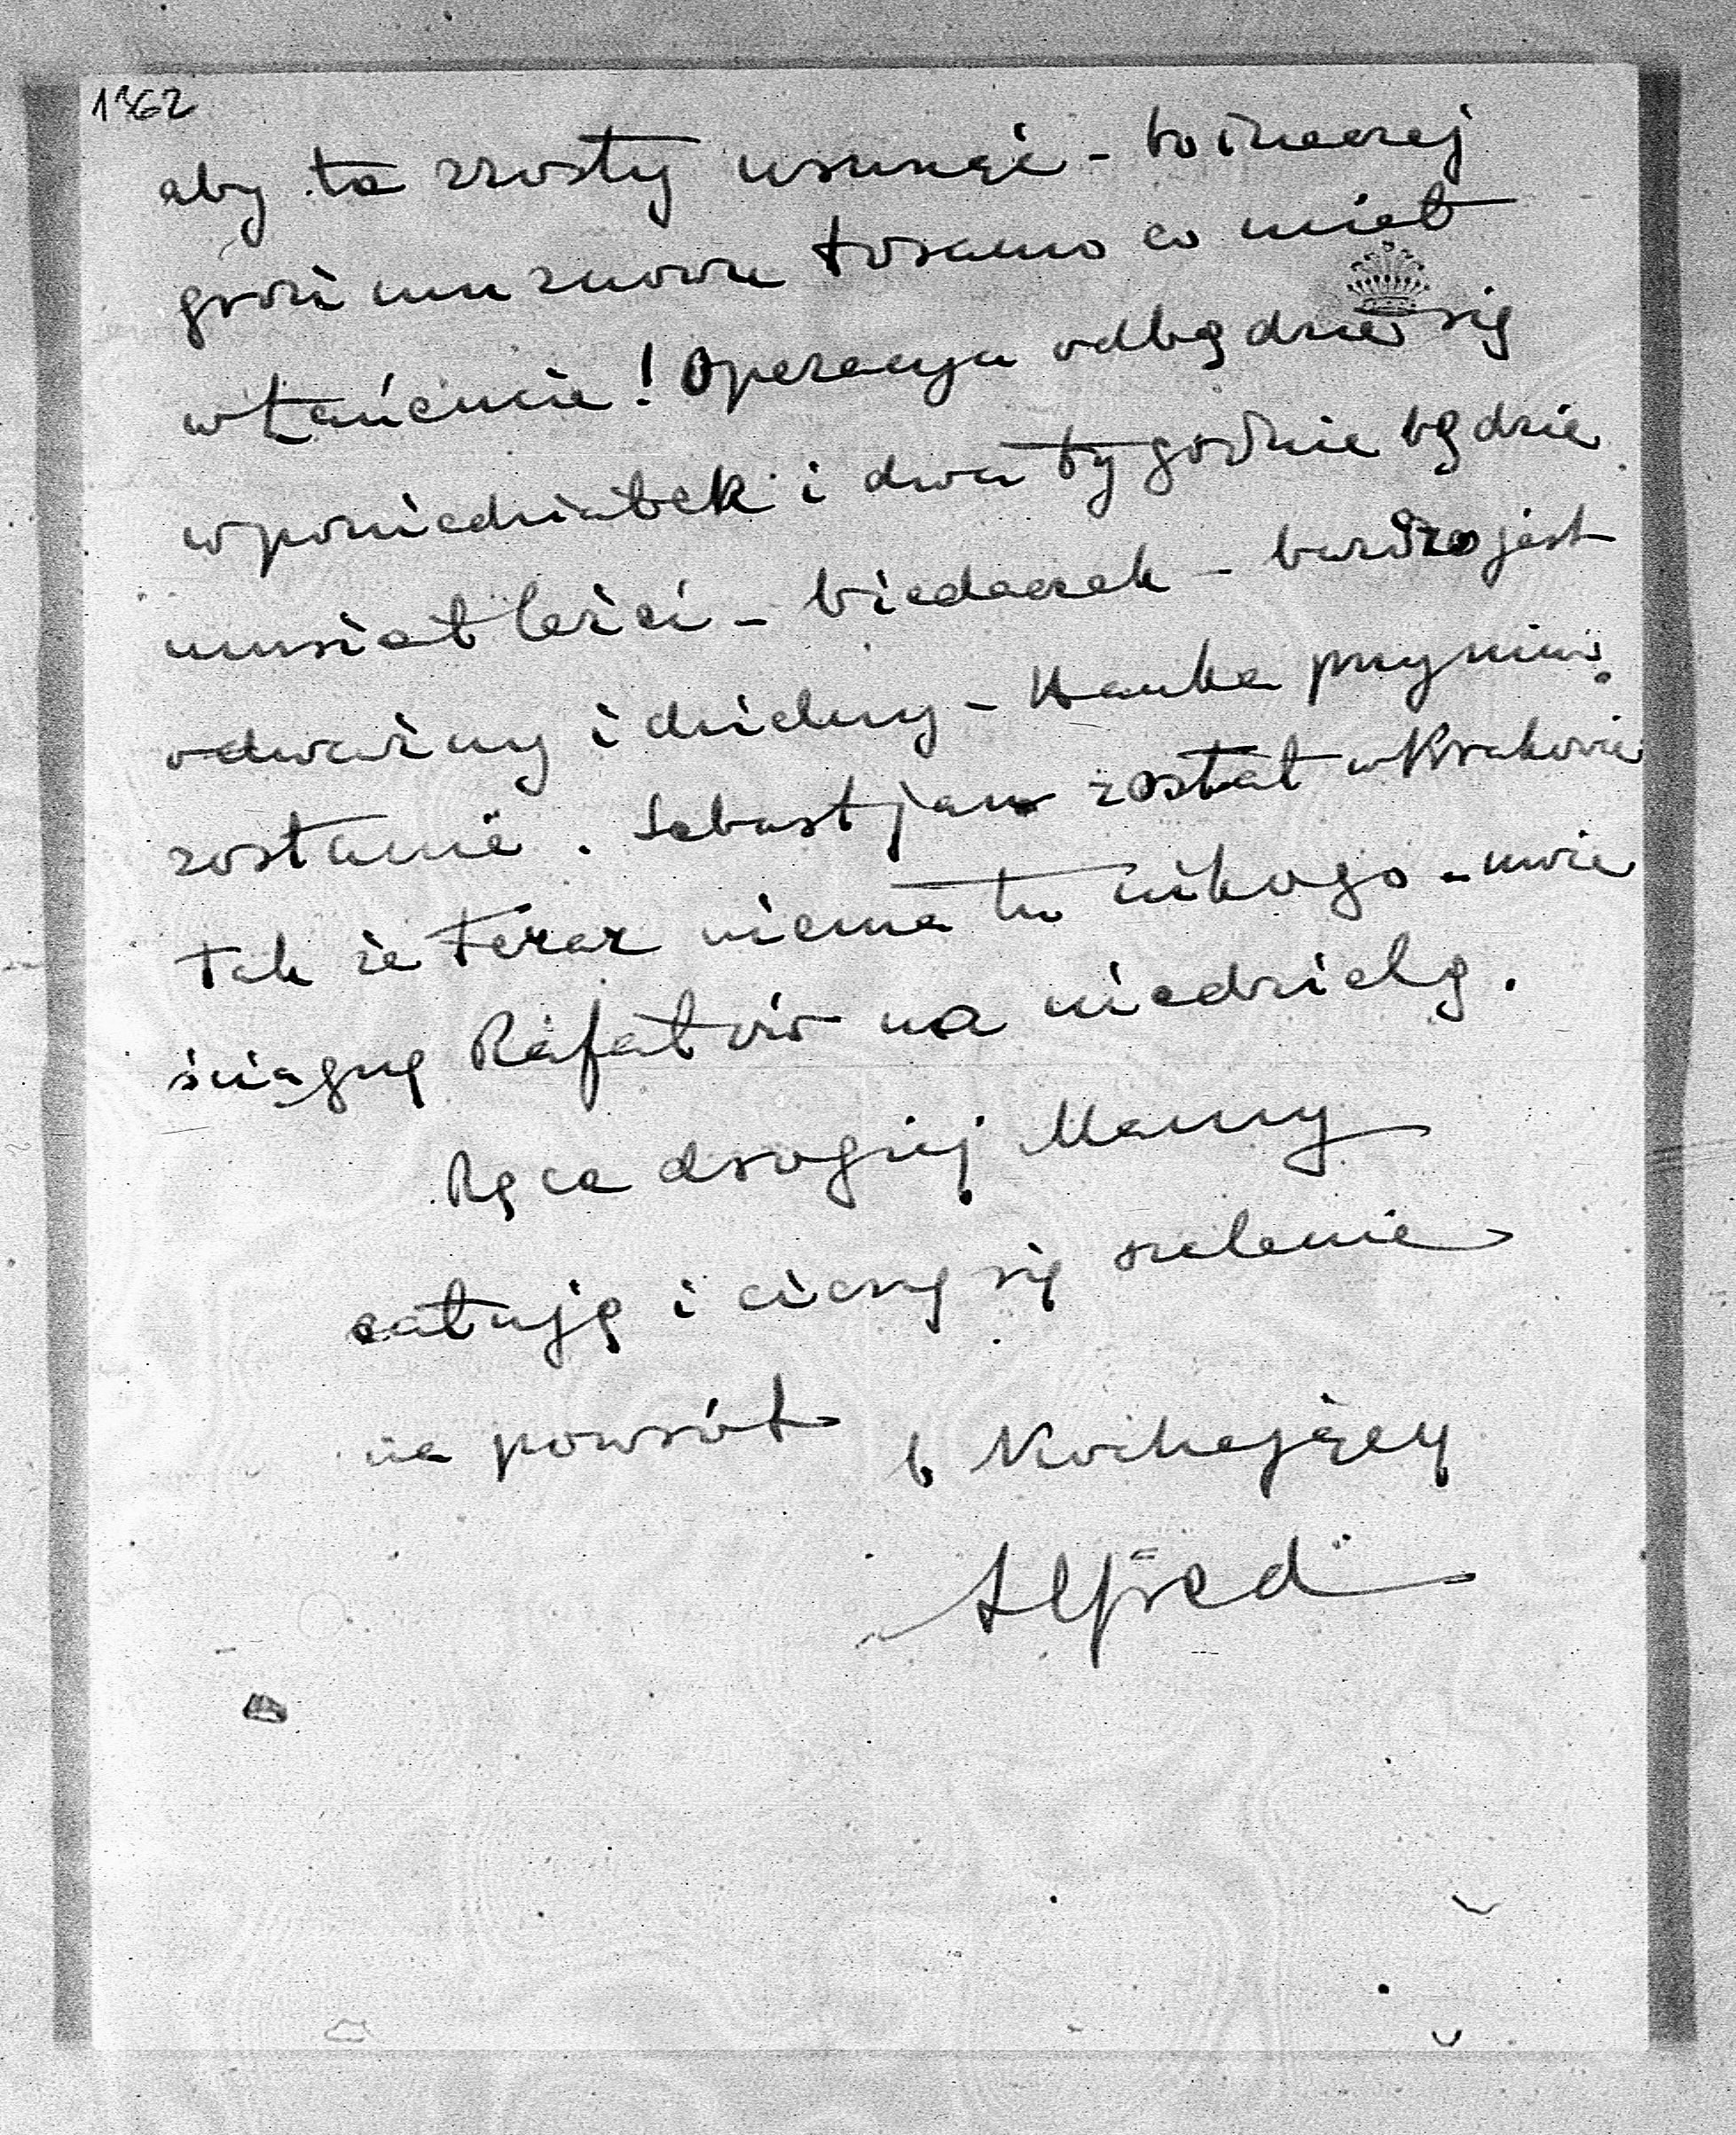 1362
aby te zrosty usunąć - bo inaczej
grozi mu znowu tosamo co miał
w Łańcucie! Operacya odbędzie się
w poniedziałek i dwa tygodnie będzie
musiał leżeć - biedaczek - bardzo jest
odważny i dzielny - Hanka przy nim
zostanie. Sebastjan został w Krakowie
tak że teraz niema tu nikogo - może
ściągnę Rafałów na niedzielę.
Ręce drogiej Mamy
całuję i cieszę się szalenie
na powrót b Kochający
Alfred